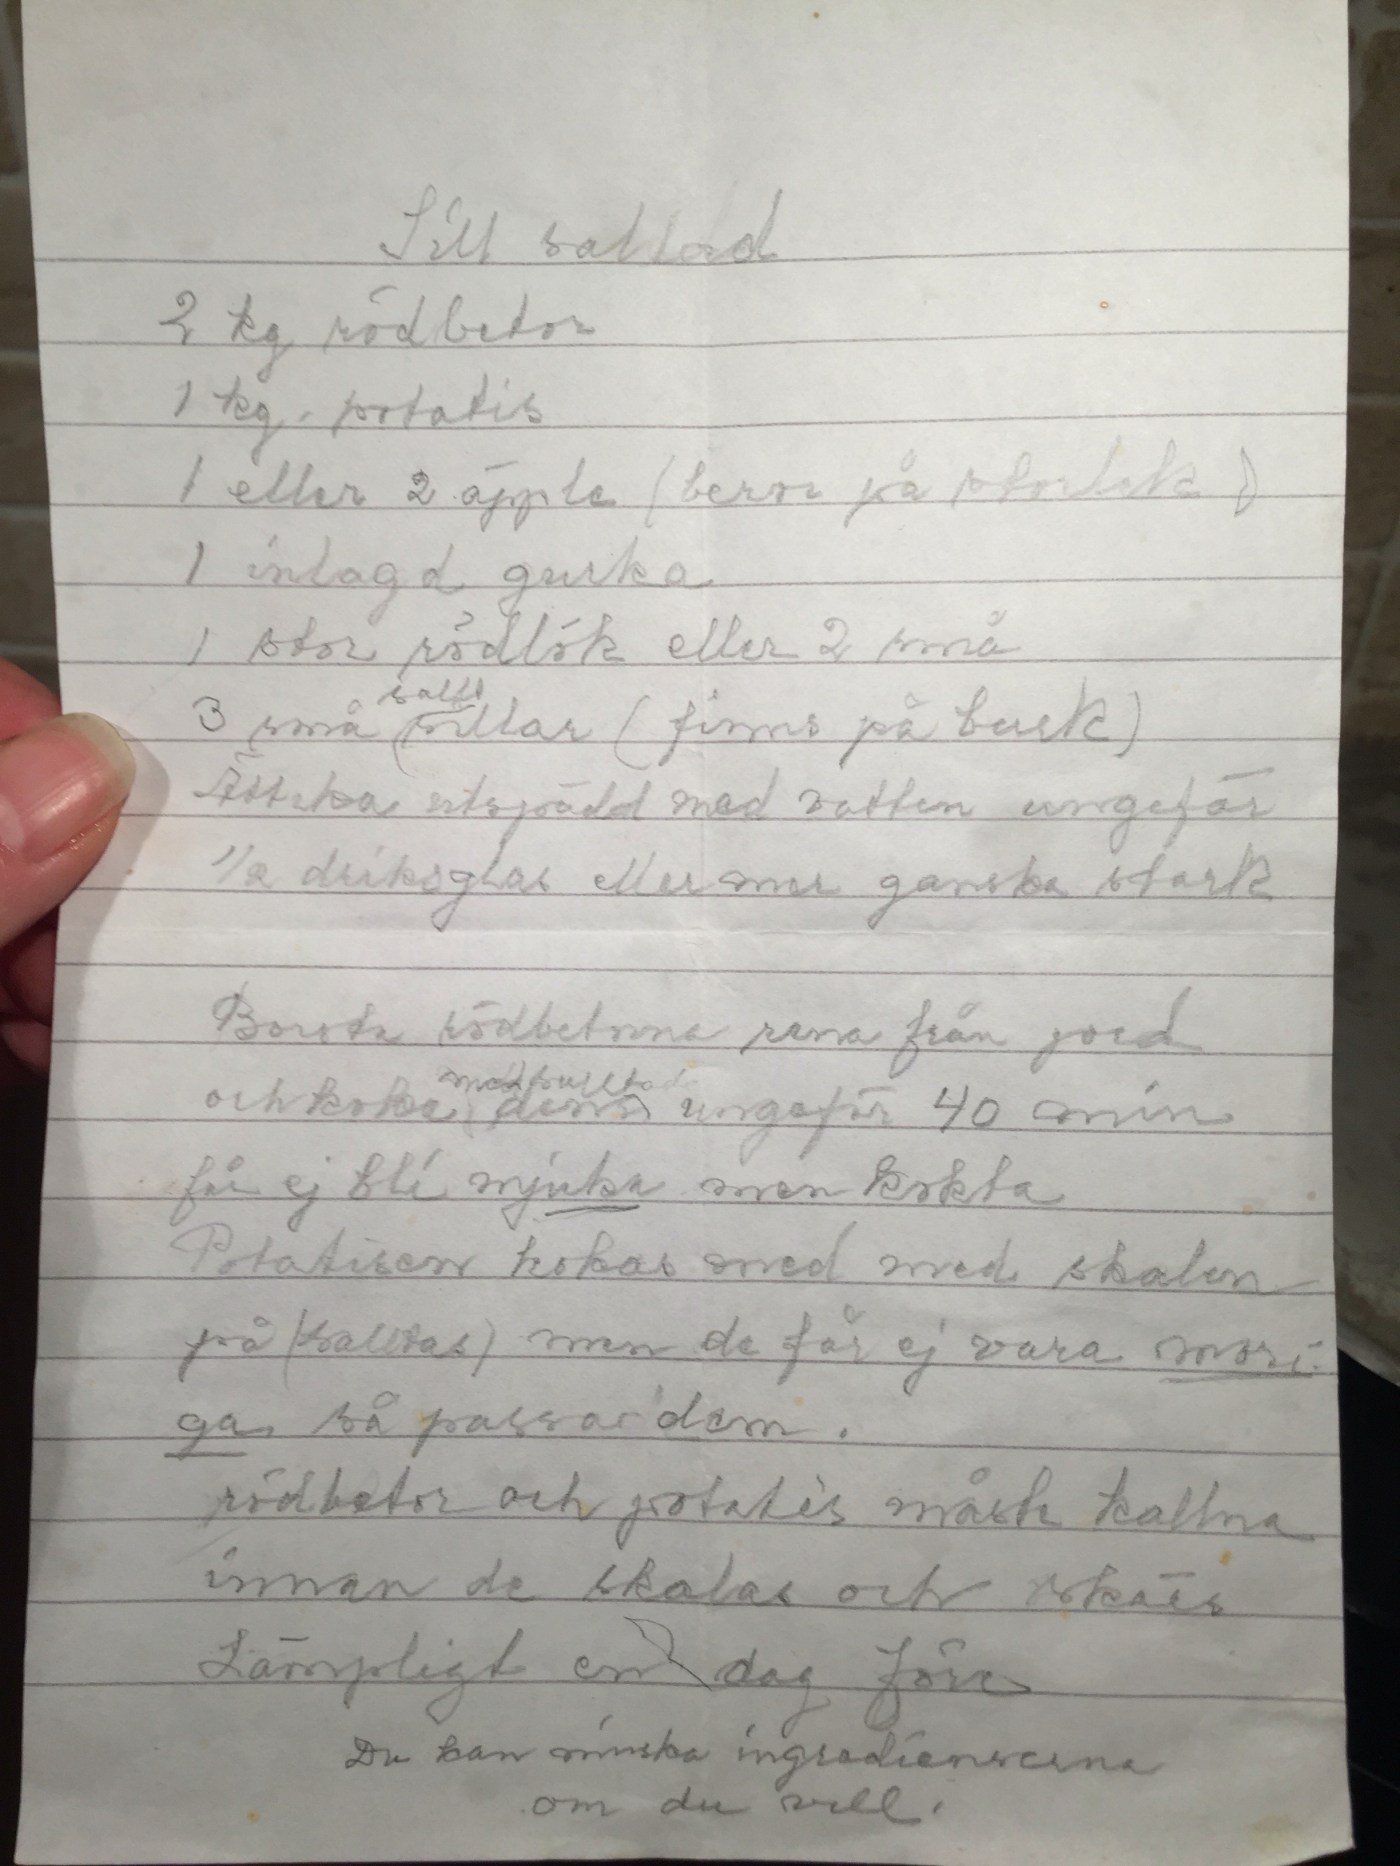 Sill sallad
2 kg rödbetor
1 kg. potatis
1 eller 2 äpple (beror på storlek)
1 inlagd gurka
1 stor rödlök eller 2 små
salt
3 små sillar (finns på burk)
Ättika utspädd med vatten ungefär
1/2 driksglas eller mer ganska stark
Borsta rödbetorna rena från jord
med
och koka dem ungefär 40 min
får ej bli mjuka men kokta
Potatisen kokas med med skalen
på (kalltas) men de får ej vara mosi-
ga så passar dem.
rödbetor och potatis måste kallna
innan de skalas och skärs
Lämpligt en dag före
Du kan minska ingredienserna
om du vill.